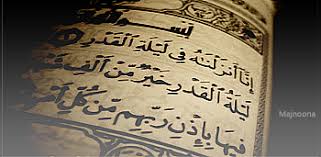 إِنَّا أَنزَلْنَٰهُ فِى لَيْلَةِ ٱلْقَدْرِ
لَيْلَةُ ٱلْقَدْرِ خَيْرٌ مِّنْ أَلْفِ
فِيهَا بِإِذْنِ رَبِّهِم مِّن كُلِّ
Majnoona